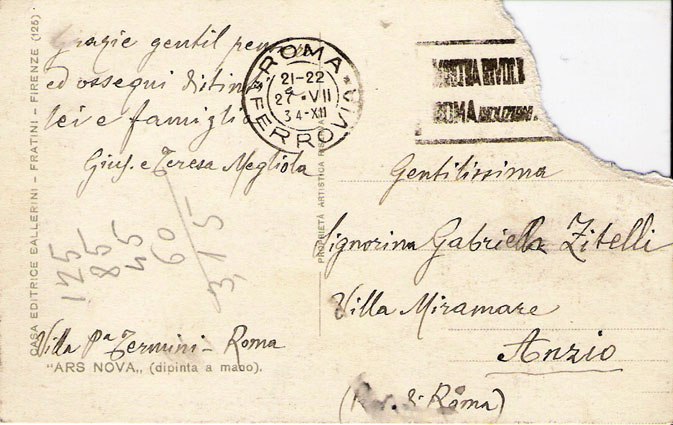 Grazie gentil pensiero
ed ossequi distinti
lei e famiglia
Gius. e Teresa Megliola
125
85
45
60
3,15
Villa Pa Termini - Roma
"ARS NOVA„ (dipinta a mano).
CASA EDITRICE BALLERINI - FRATINI - FIRENZE (125)
PROPRIETÀ ARTISTICA
ROMA
FERROVIA
21-22
27·VII
34-XII
MOSTRA RIVOLUZ
ROMA RIDUZIONI
Gentilissima
Signorina Gabriella Zitelli
Villa Miramare
Anzio
(di Roma)